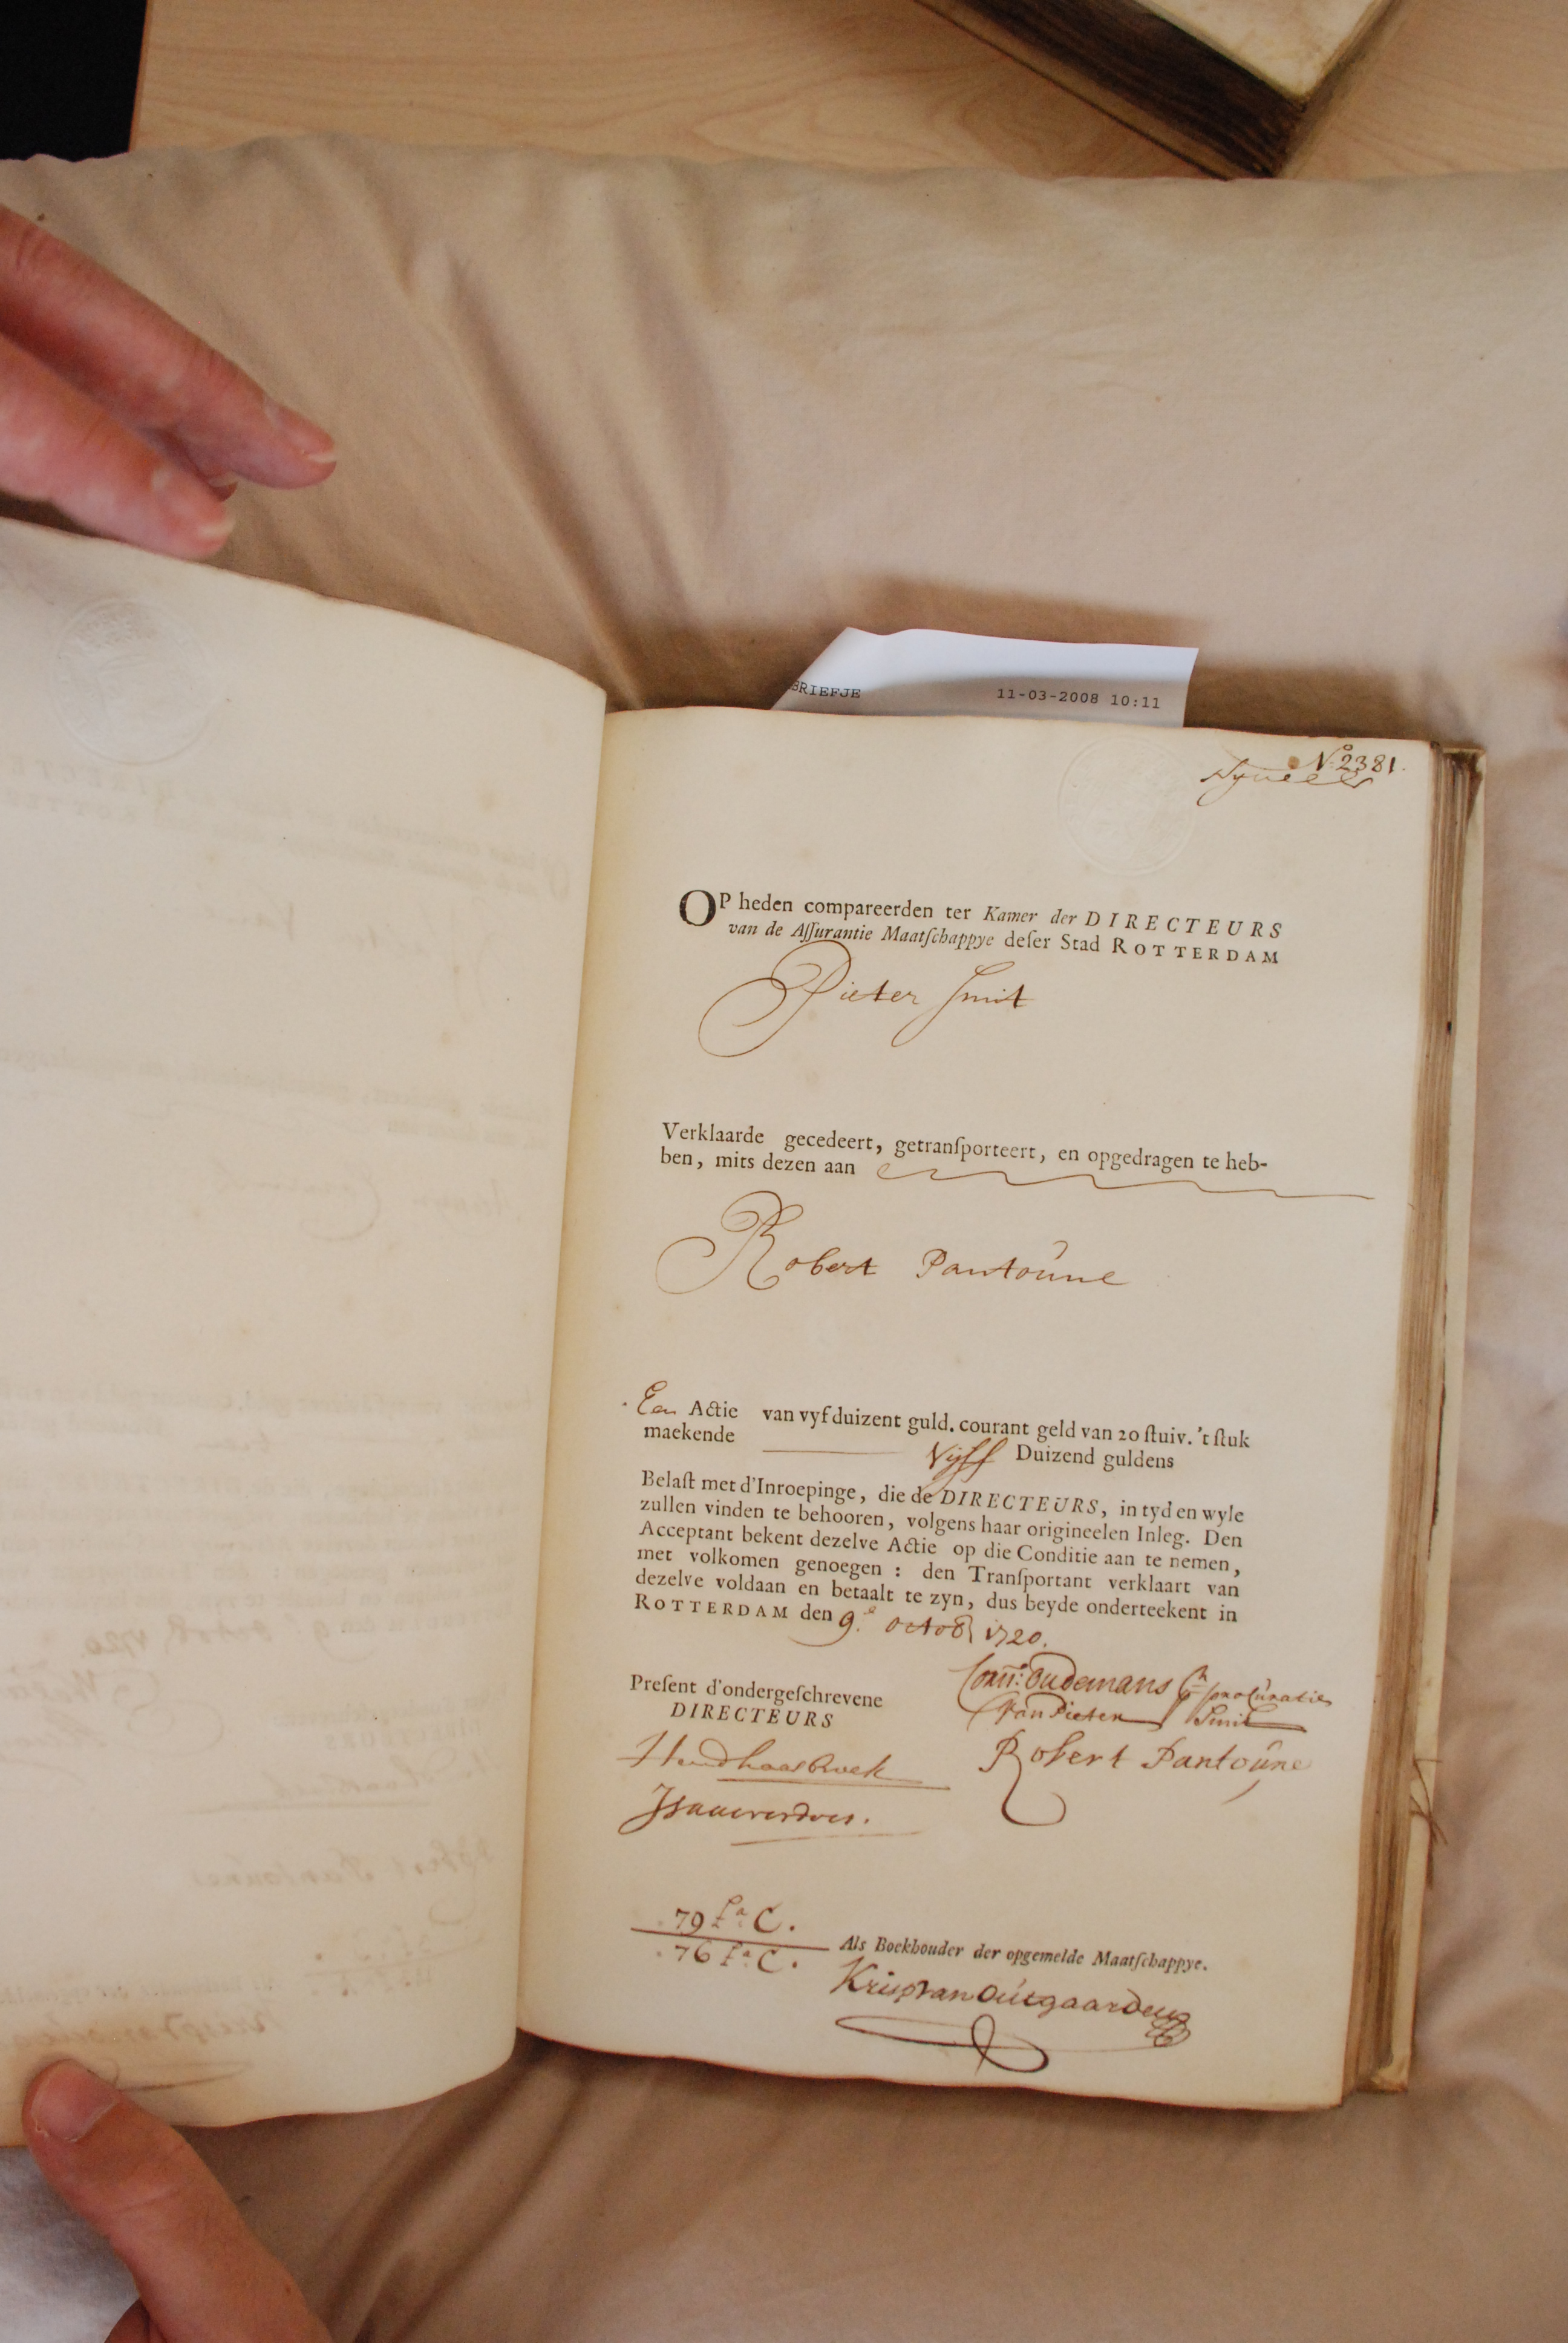 BRIEFJE 11-03-2008 10:11
No. 2381.
OP heden compareerden ter Kamer der DIRECTEURS
van de Aſſurantie Maatſchappye deſer Stad ROTTERDAM
Pieter Smit
Verklaarde gecedeert, getranſporteert, en opgedragen te heb-
ben, mits dezen aan
Robert Pantoúne
Een Actie van vyf duizent guld. courant geld van 20 ſtuiv. 't ſtuk
maekende Vijff Duizend guldens
Belaſt met d'Inroepinge, die de DIRECTEURS, in tyd en wyle
zullen vinden te behooren, volgens haar origineelen Inleg. Den
Acceptant bekent dezelve Actie op die Conditie aan te nemen,
met volkomen genoegen : den Tranſportant verklaart van
dezelve voldaan en betaalt te zyn, dus beyde onderteekent in
ROTTERDAM den 9e. octob 1720.
Preſent d'ondergeſchrevene
DIRECTEURS
Corn: Oudemans procúratie
Van Pieter Smit
Robert Pantoúne
79 C.
76 C.
Als Boekhouder der opgemelde Maatſchappye.
Krisp van Outgaarden